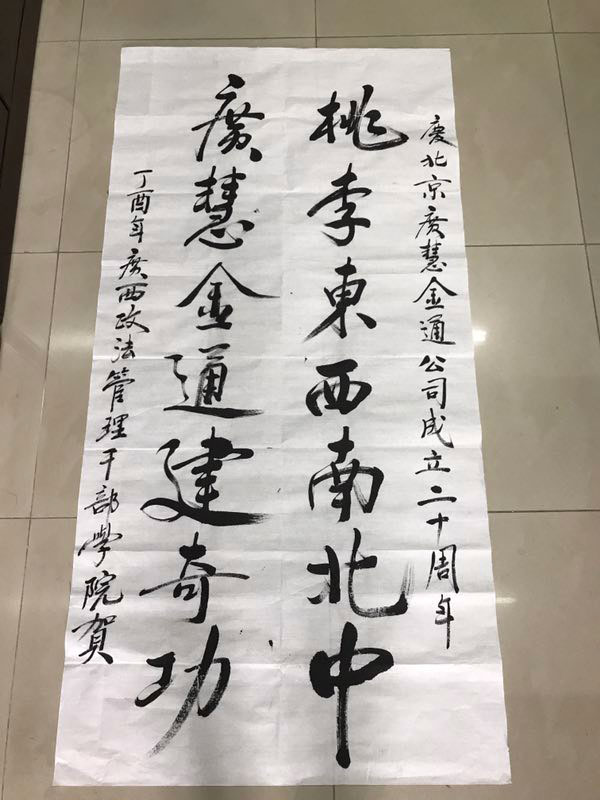 慶北京廣慧金通公司成立二十周年
桃李東西南北中
廣慧金通建奇功
丁酉年廣西政法管理干部學院賀